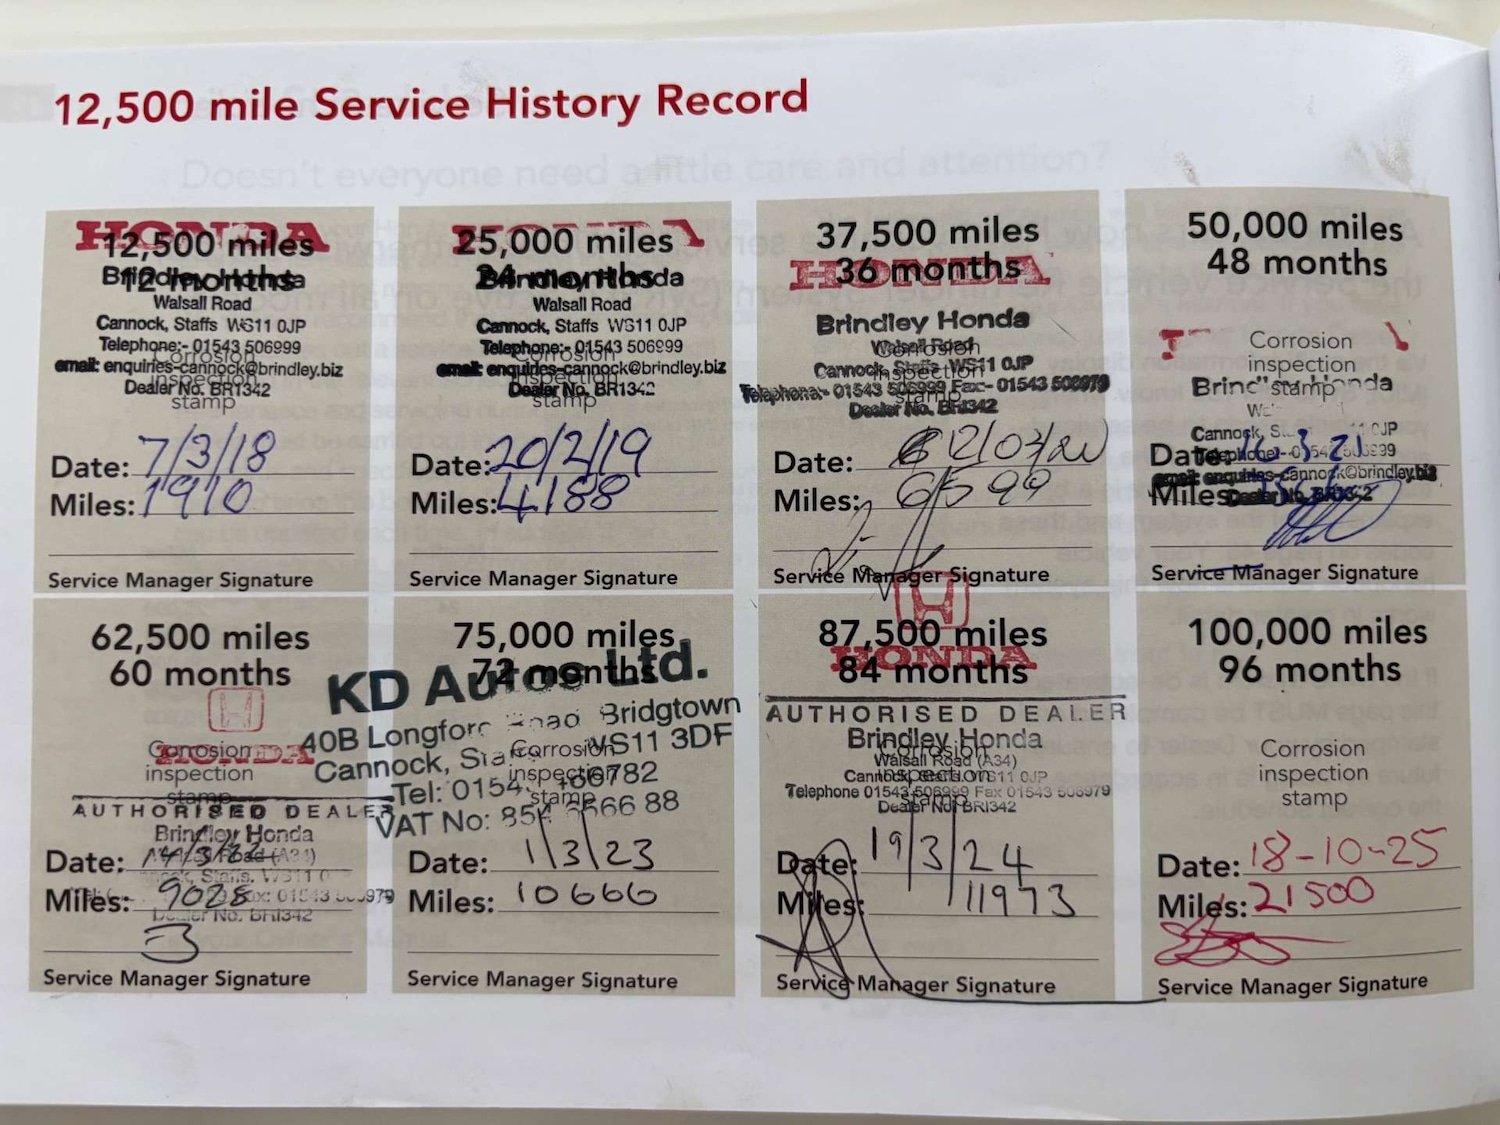 12,500 mile Service History Record
HONDA
12,500 miles
12 months
Brindley Honda
Walsall Road
Cannock, Staffs WS11 0JP
Telephone:- 01543 506999
Corrosion
email: enquiries-cannock@brindley.biz
inspection
Dealer No. BR1342
stamp
Date: 7/3/18
Miles: 1910
Service Manager Signature
HONDA
25,000 miles
24 months
Brindley Honda
Walsall Road
Cannock, Staffs WS11 0JP
Telephone:- 01543 506999
Corrosion
email: enquiries-cannock@brindley.biz
inspection
Dealer No. BR1342
stamp
Date: 20/2/19
Miles: 4188
Service Manager Signature
37,500 miles
36 months
HONDA
Brindley Honda
Walsall Road
Corrosion
Cannock, Staffs WS11 0JP
inspection
Telephone:- 01543 506999 Fax:- 01543 506979
stamp
Dealer No. BR1342
Date: 12/03/20
Miles: 6599
Service Manager Signature
50,000 miles
48 months
Corrosion
inspection
stamp
Honda
Cannock,
0JP
enquiries-cannock@brindley.biz
Date: 3-21
Miles:
Dealer No. BR1342
Service Manager Signature
62,500 miles
60 months
HONDA
Corrosion
inspection
stamp
AUTHORISED DEALER
Brindley Honda
Road (A34)
Staffs. WS11
Date: /3/22
Miles: 9028
Dealer No. BRI342
Service Manager Signature
75,000 miles
72 months
KD Autos Ltd.
40B Longford Road Bridgtown
Cannock, Staffs WS11 3DF
Corrosion
inspection
stamp
Tel: 01543 466782
VAT No: 66 88
Date: 1/3/23
Miles: 10666
Service Manager Signature
87,500 miles
84 months
HONDA
AUTHORISED DEALER
Brindley Honda
Corrosion
Walsall Road (A34)
Cannock, Staffs. WS11 0JP
inspection
Telephone 01543 506999 Fax 01543 506979
stamp
Dealer No. BRI342
Date: 19/3/24
Miles: 11973
Service Manager Signature
100,000 miles
96 months
Corrosion
inspection
stamp
Date: 18-10-25
Miles: 21500
Service Manager Signature